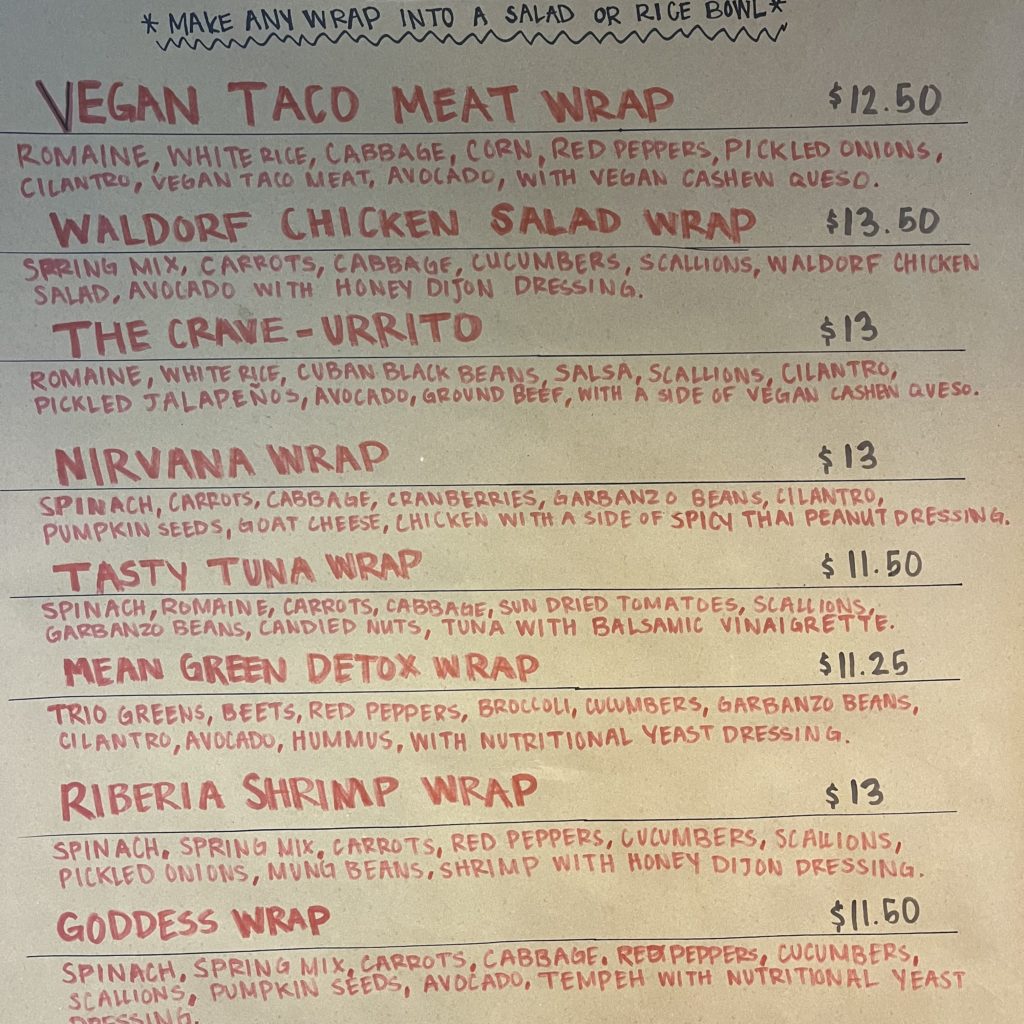 * MAKE ANY WRAP INTO A SALAD OR RICE BOWL *
VEGAN TACO MEAT WRAP $12.50
ROMAINE, WHITE RICE, CABBAGE, CORN, RED PEPPERS, PICKLED ONIONS,
CILANTRO, VEGAN TACO MEAT, AVOCADO, WITH VEGAN CASHEW QUESO.
WALDORF CHICKEN SALAD WRAP $13.50
SPRING MIX, CARROTS, CABBAGE, CUCUMBERS, SCALLIONS, WALDORF CHICKEN
SALAD, AVOCADO WITH HONEY DIJON DRESSING.
THE CRAVE-URRITO $13
ROMAINE, WHITE RICE, CUBAN BLACK BEANS, SALSA, SCALLIONS, CILANTRO,
PICKLED JALAPEÑOS, AVOCADO, GROUND BEEF, WITH A SIDE OF VEGAN CASHEW QUESO.
NIRVANA WRAP $13
SPINACH, CARROTS, CABBAGE, CRANBERRIES, GARBANZO BEANS, CILANTRO,
PUMPKIN SEEDS, GOAT CHEESE, CHICKEN WITH A SIDE OF SPICY THAI PEANUT DRESSING.
TASTY TUNA WRAP $11.50
SPINACH, ROMAINE, CARROTS, CABBAGE, SUN DRIED TOMATOES, SCALLIONS,
GARBANZO BEANS, CANDIED NUTS, TUNA WITH BALSAMIC VINAIGRETTE.
MEAN GREEN DETOX WRAP $11.25
TRIO GREENS, BEETS, RED PEPPERS, BROCCOLI, CUCUMBERS, GARBANZO BEANS,
CILANTRO, AVOCADO, HUMMUS, WITH NUTRITIONAL YEAST DRESSING.
RIBERIA SHRIMP WRAP $13
SPINACH, SPRING MIX, CARROTS, RED PEPPERS, CUCUMBERS, SCALLIONS,
PICKLED ONIONS, MUNG BEANS, SHRIMP WITH HONEY DIJON DRESSING.
GODDESS WRAP $11.50
SPINACH, SPRING MIX, CARROTS, CABBAGE, RED PEPPERS, CUCUMBERS,
SCALLIONS, PUMPKIN SEEDS, AVOCADO, TEMPEH WITH NUTRITIONAL YEAST
DRESSING.